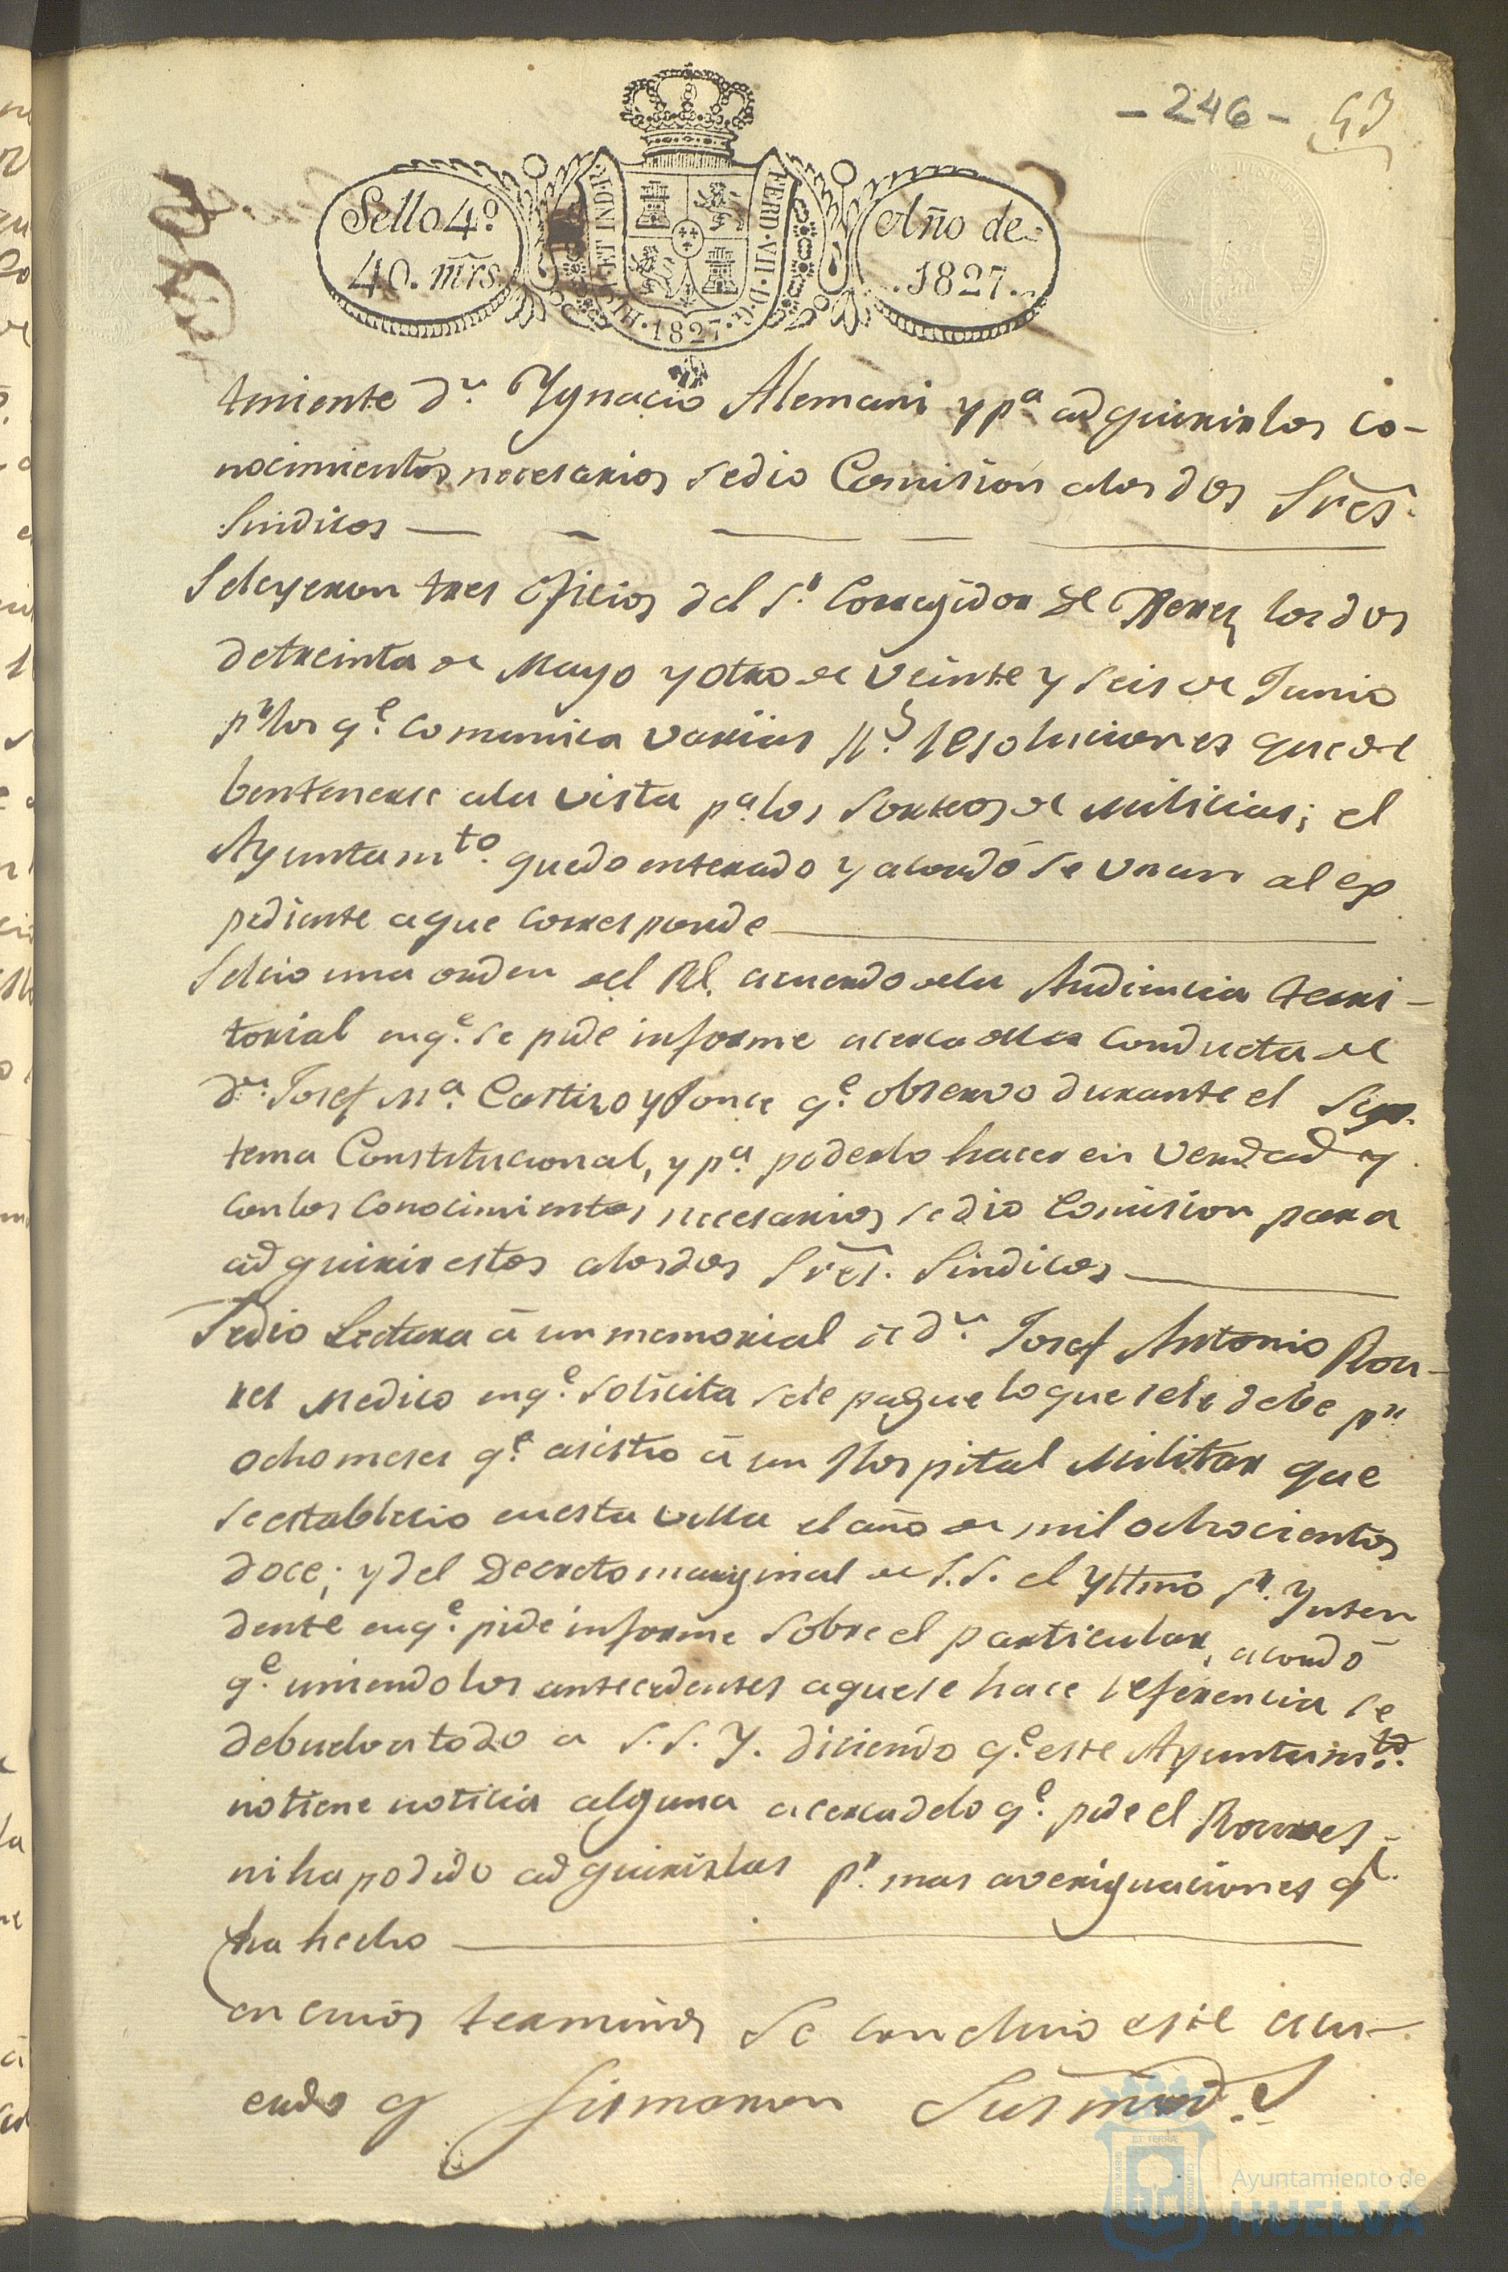 - 246 -
Sello 4º
40. mrs
HISP. ET IND. R.
FERD. VII. D. G.
1827
Año de
1827
teniente dn. Ygnacio Alemani y pa. adquirir los co-
nocimientos necesarios se dio Comision a los dos Sres.
Sindicos
Se leyeron tres oficios del Sr. Corregidor de Xerez los dos
de treinta de Mayo y otro de veinte y seis de Junio
pr. los qe. comunica varias Rs. resoluciones que de
ben tenerse a la vista pa. los sorteos de Milicias; el
Ayuntamto. quedo enterado y acordó se unan al ex
pediente a que corresponde
Se leio una orden del Rl. acuerdo de la Audiencia terri-
torial en qe. se pide informe acerca de la conducta de
dn. Josef Ma. Castizo y Ponce qe. observo durante el Sys-
tema Constitucional, y pa. poderlo hacer en verdad y
con los conocimientos necesarios se dio Comision para
adquirir estos a los dos Sres. Sindicos
Se dio Lectura á un memorial de dn. Josef Antonio Rou-
res Medico en qe. solicita se le pague lo que se le debe pr.
ocho meses qe. asistio á un Hospital Militar que
se establecio en esta villa el año de mil ochocientos
doce; y del Decreto marginal de S.S. el Yltmo Sr. Ynten
dente en qe. pide informe sobre el particular, acordó
qe. uniendo los antecedentes a que se hace referencia se
debuelva todo a S.S.Y. diciendo qe. este Ayuntamto.
no tiene noticia alguna acerca de lo qe. pide el Roures,
ni ha podido adquirirlas pr. mas averiguaciones qe.
ha hecho
en cuios terminos se concluio este acu-
erdo q firmaron Sus mrds.
Ayuntamiento de
HUELVA